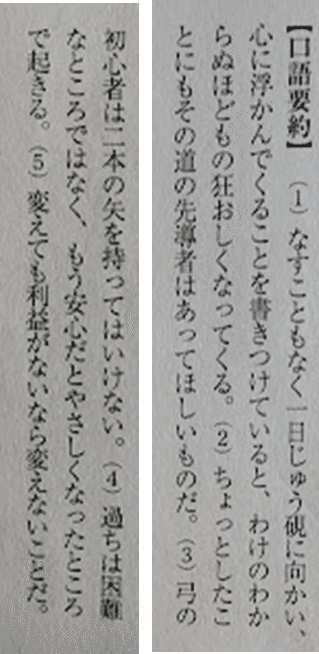 【口語要約】 (1) なすこともなく一日じゅう硯に向かい、
心に浮かんでくることを書きつけていると、わけのわか
らぬほどもの狂おしくなってくる。(2) ちょっとしたこ
とにもその道の先導者はあってほしいものだ。(3) 弓の
初心者は二本の矢を持ってはいけない。(4) 過ちは困難
なところではなく、もう安心だとやさしくなったところ
で起きる。(5) 変えても利益がないなら変えないことだ。